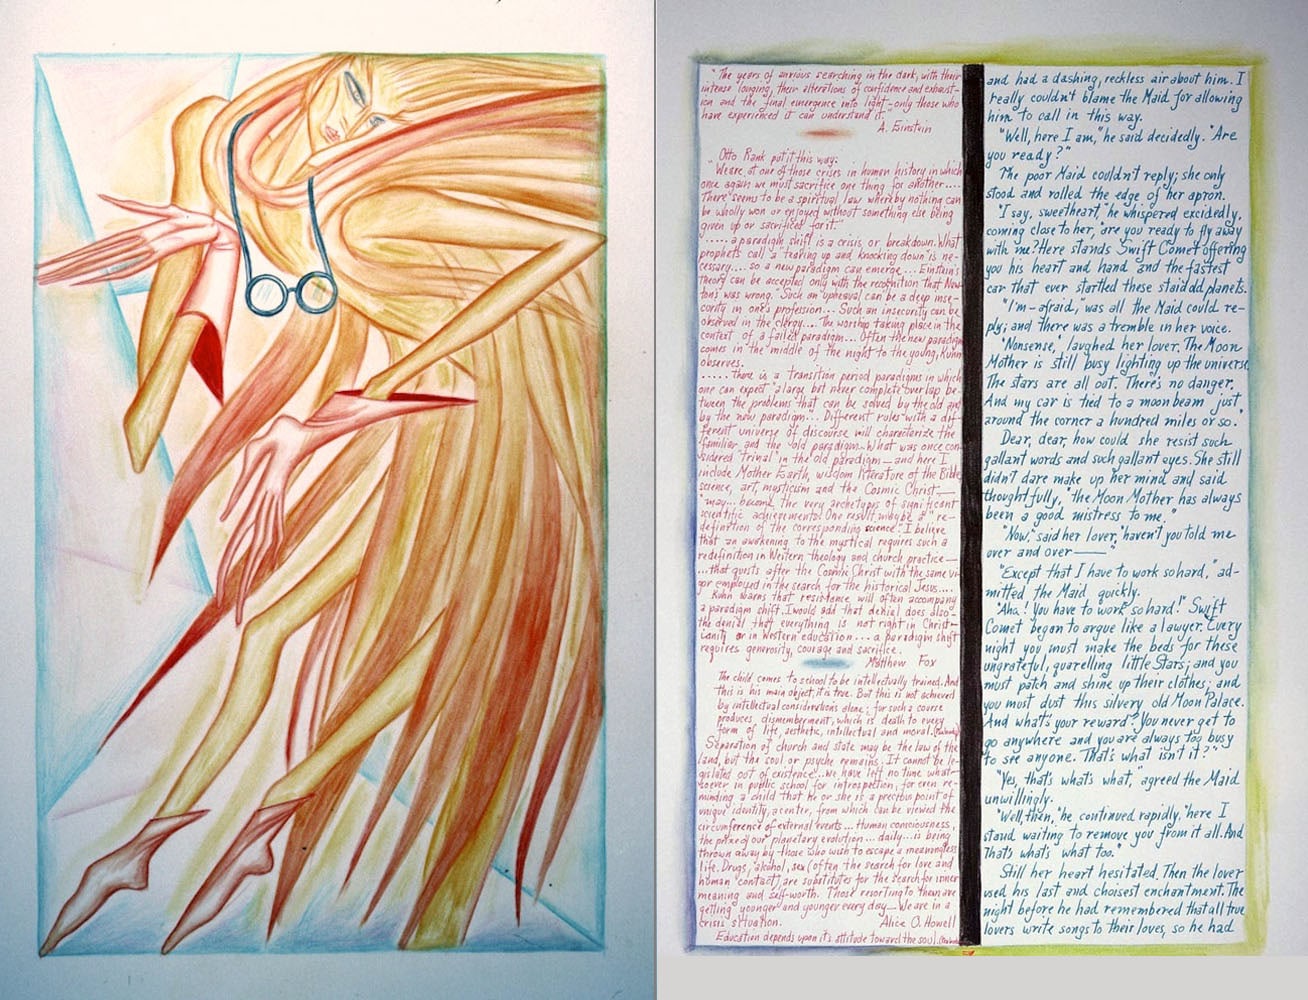 "The years of anxious searching in the dark, with their
intense longing, their alterations of confidence and exhaust-
ion and the final emergence into light—only those who
have experienced it can understand it."
A. Einstein
Otto Rank put it this way:
We are at one of those crises in human history in which
once again we must sacrifice one thing for another....
There seems to be a spiritual law whereby nothing can
be wholly won or enjoyed without something else being
given up or sacrificed for it.
..... a paradigm shift is a crisis or breakdown. What
prophets call a "tearing up and knocking down" is ne-
cessary.... so a new paradigm can emerge.... Einstein's
theory can be accepted only with the recognition that New-
ton's was wrong. Such an upheaval can be a deep inse-
curity in one's profession... Such an insecurity can be
observed in the clergy.... The worship taking place in the
context of a failed paradigm... Often the new paradigm
comes in the middle of the night to the young, Kuhn
observes.
..... There is a transition period paradigms in which
one can expect "a large but never complete overlap be-
tween the problems that can be solved by the old and
by the new paradigm... Different rules with a dif-
ferent universe of discourse will characterize the
familiar and the old paradigm. What was once con-
sidered "trivial" in the old paradigm—and here I
include Mother Earth, wisdom literature of the Bible
science, art, mysticism and the Cosmic Christ—
"may... become the very archetypes of significant
scientific achievements. One result maybe a "re-
definition of the corresponding science." I believe
that an awakening to the mystical requires such a
redefinition in Western theology and church practice—
...that quests after the Cosmic Christ with the same vi-
gor employed in the search for the historical Jesus....
Kuhn warns that resistance will often accompany
a paradigm shift. I would add that denial does also—
the denial that everything is not right in Christ-
ianity or in Western education... a paradigm shift
requires generosity, courage and sacrifice.
Matthew Fox
The child comes to school to be intellectually trained. And
this is his main object, it is true. But this is not achieved
by intellectual considerations alone; for such a course
produces dismemberment, which is death to every
form of life, aesthetic, intellectual and moral.
Separation of church and state may be the law of the
land, but the soul or psyche remains. It cannot be le-
gislated out of existence... we have left no time what-
soever in public school for introspection, for even re-
minding a child that he or she is a precious point of
unique identity, a center, from which can be viewed the
circumference of external events... Human consciousness,
the prize of our planetary evolution... daily... is being
thrown away by those who wish to escape a meaningless
life. Drugs, alcohol, sex (often the search for love and
human contact) are substitutes for the search for inner
meaning and self-worth. Those resorting to them are
getting younger and younger every day—We are in a
crisis situation. Alice O. Howell
Education depends upon its attitude toward the soul.
and had a dashing, reckless air about him. I
really couldn't blame the Maid for allowing
him to call in this way.
"Well, here I am," he said decidedly. "Are
you ready?"
The poor Maid couldn't reply; she only
stood and rolled the edge of her apron.
"I say, sweetheart," he whispered excidedly,
coming close to her, "are you ready to fly away
with me? Here stands Swift Comet offering
you his heart and hand and the fastest
car that ever startled these staid old planets.
"I'm—afraid," was all the Maid could re-
ply; and there was a tremble in her voice.
"Nonsense," laughed her lover. The Moon
Mother is still busy lighting up the universe.
The stars are all out. There's no danger.
And my car is tied to a moonbeam just
around the corner a hundred miles or so."
Dear, dear, how could she resist such
gallant words and such gallant eyes. She still
didn't dare make up her mind and said
thoughtfully, "the Moon Mother has always
been a good mistress to me."
"Now," said her lover, "haven't you told me
over and over——"
"Except that I have to work so hard," ad-
mitted the Maid quickly.
"Aha! You have to work so hard!" Swift
Comet began to argue like a lawyer. Every
night you must make the beds for these
ungrateful, quarrelling little Stars; and you
must patch and shine up their clothes; and
you must dust this silvery old Moon Palace.
And what's your reward? You never get to
go anywhere and you are always too busy
to see anyone. That's what isn't it?"
"Yes, that's what's what," agreed the Maid
unwillingly.
"Well, then," he continued rapidly, "here I
stand waiting to remove you from it all. And
that's what's what too."
Still her heart hesitated. Then the lover
used his last and choisest enchantment. The
night before he had remembered that all true
lovers write songs to their loves, so he had